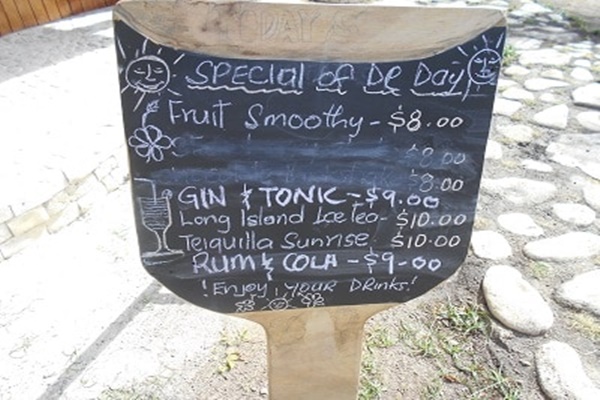 SPECIAL of De Day
Fruit Smoothy - $8.00
$8.00
$8.00
GIN & TONIC - $9.00
Long Island Ice Tea - $10.00
Teiquilla Sunrise - $10.00
RUM & COLA - $9-00
! Enjoy, YOUR DRINKs!